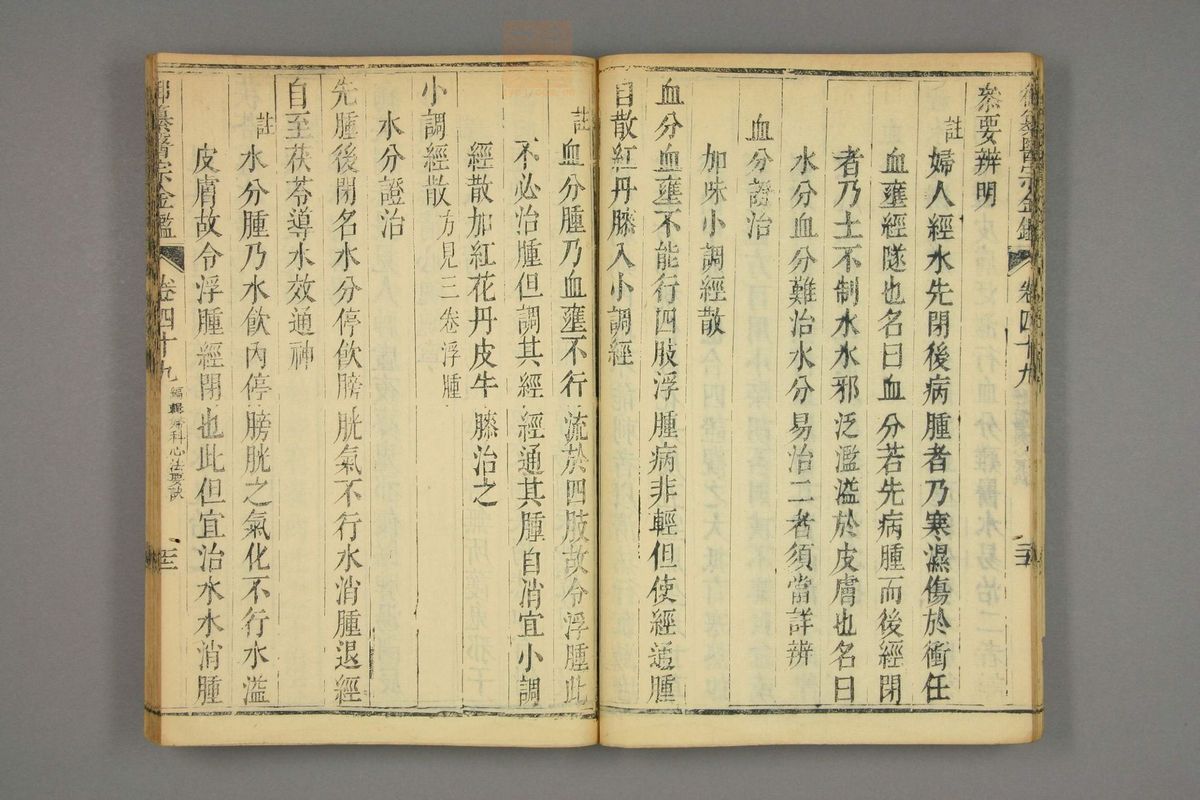 御纂醫宗金鑑 卷四十九
叅要辨明
註 婦人經水先閉後病腫者乃寒濕傷於衝任
血壅經隧也名曰血分若先病腫而後經閉
者乃土不制水水邪泛濫溢於皮膚也名曰
水分血分難治水分易治二者須當詳辨
血分證治
加味小調經散
血分血壅不能行四肢浮腫病非輕但使經通腫
自散紅丹膝入小調經
註 血分腫乃血壅不行流於四肢故令浮腫此
不必治腫但調其經經通其腫自消宜小調
經散加紅花丹皮牛膝治之
小調經散 方見三卷浮腫
水分證治
先腫後閉名水分停飲膀胱氣不行水消腫退經
自至茯苓導水效通神
註 水分腫乃水飲內停膀胱之氣化不行水溢
皮膚故令浮腫經閉也此但宜治水水消腫
御纂醫宗金鑑 卷四十九 編輯婦科心法要訣